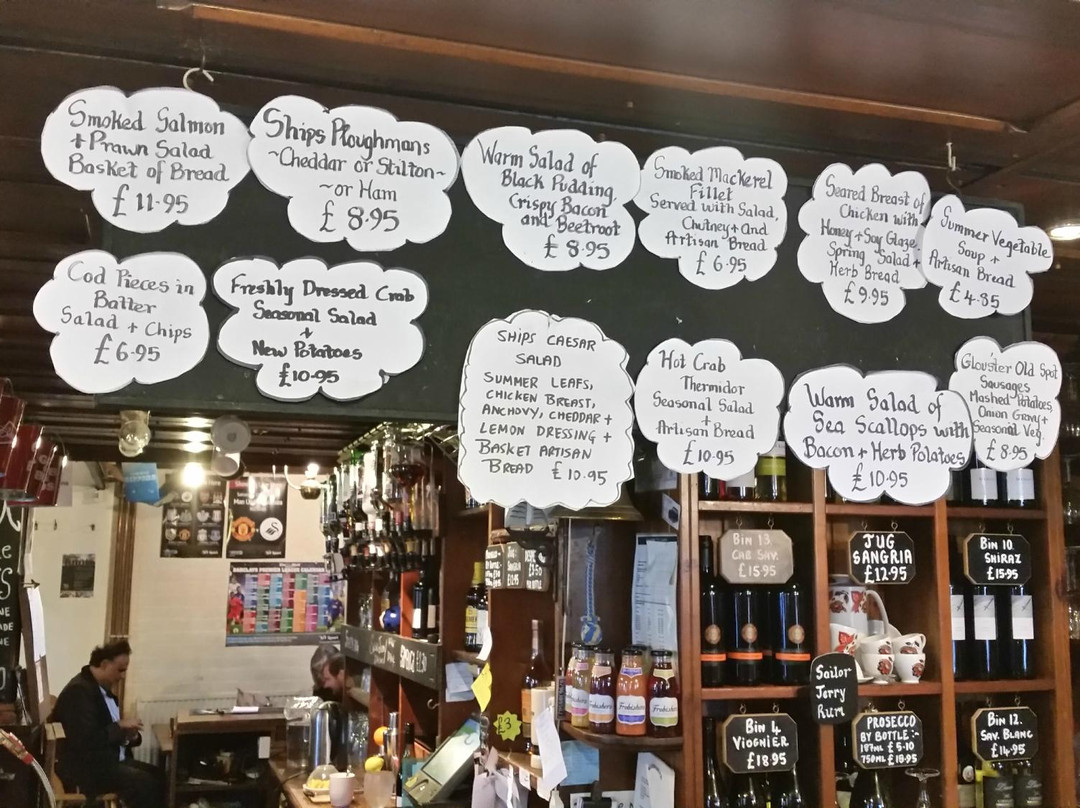 Smoked Salmon
+ Prawn Salad
Basket of Bread
£ 11·95
Ships Ploughmans
~Cheddar or Stilton~
~or Ham
£ 8·95
Warm Salad of
Black Pudding,
Crispy Bacon
and Beetroot
£ 8·95
Smoked Mackerel
Fillet
Served with Salad,
Chutney + and
Artisan Bread
£ 6·95
Seared Breast of
Chicken with
Honey + Soy Glaze
Spring Salad +
Herb Bread
£9·95
Summer Vegetable
Soup +
Artisan Bread
£4·85
Cod Pieces in
Batter
Salad + Chips
£6·95
Freshly Dressed Crab
Seasonal Salad
+
New Potatoes
£10·95
SHIPS CAESAR
SALAD
SUMMER LEAFS,
CHICKEN BREAST,
ANCHOVY, CHEDDAR +
LEMON DRESSING +
BASKET ARTISAN
BREAD £10·95
Hot Crab
Thermidor
Seasonal Salad
+
Artisan Bread
£10·95
Warm Salad of
Sea Scallops with
Bacon + Herb Potatoes
£10·95
Glouster Old Spot
Sausages
Mashed Potatoes
Onion Gravy +
Seasonal Veg.
£8·95
BIN 13
CAB SAV.
£15·95
JUG
SANGRIA
£12·95
BIN 10
SHIRAZ
£15·95
SAILOR
JERRY
RUM
BIN 4
VIOGNIER
£18·95
PROSECCO
BY BOTTLE:-
187ml £5·10
750ml £18·95
BIN 12.
SAV. BLANC
£14·95
£3
Frobishers
Frobishers
Frobishers
BARCLAYS PREMIER LEAGUE